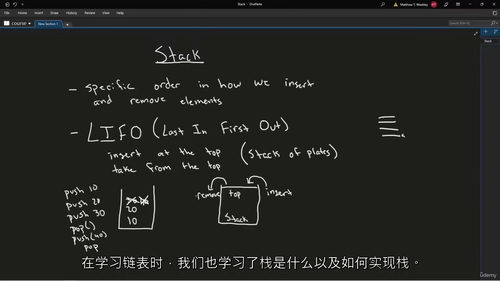 Stack - OneNote
Matthew T. Weekley
course
New Section 1
File Home Insert Draw History Review View Help
Stack
Stack
- specific order in how we insert
and remove elements
- LIFO (Last In First Out)
insert at the top (Stack of plates)
take from the top
push 10
push 20
push 30
pop()
push(40)
pop
20
10
remove top insert
Stack
在学习链表时，我们也学习了栈是什么以及如何实现栈。
Udemy